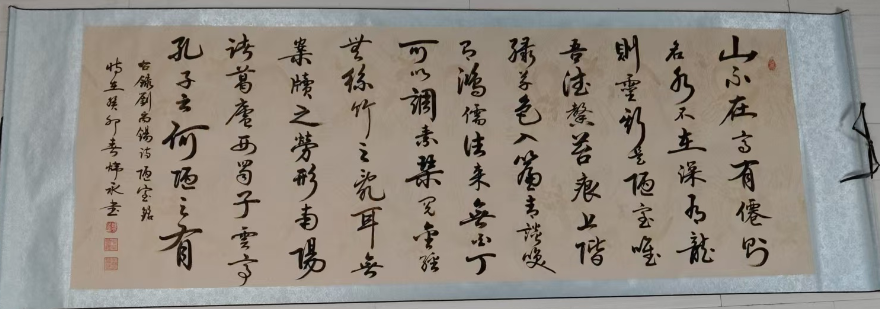 山不在高有僊則
名水不在深有龍
則靈斯是陋室唯
吾德馨苔痕上階
綠草色入簾青談笑
有鴻儒往來無白丁
可以調素琴閱金經
無絲竹之亂耳無
案牘之勞形南陽
諸葛廬西蜀子雲亭
孔子云何陋之有
右錄劉禹錫詩陋室銘
時在癸卯春煒永書